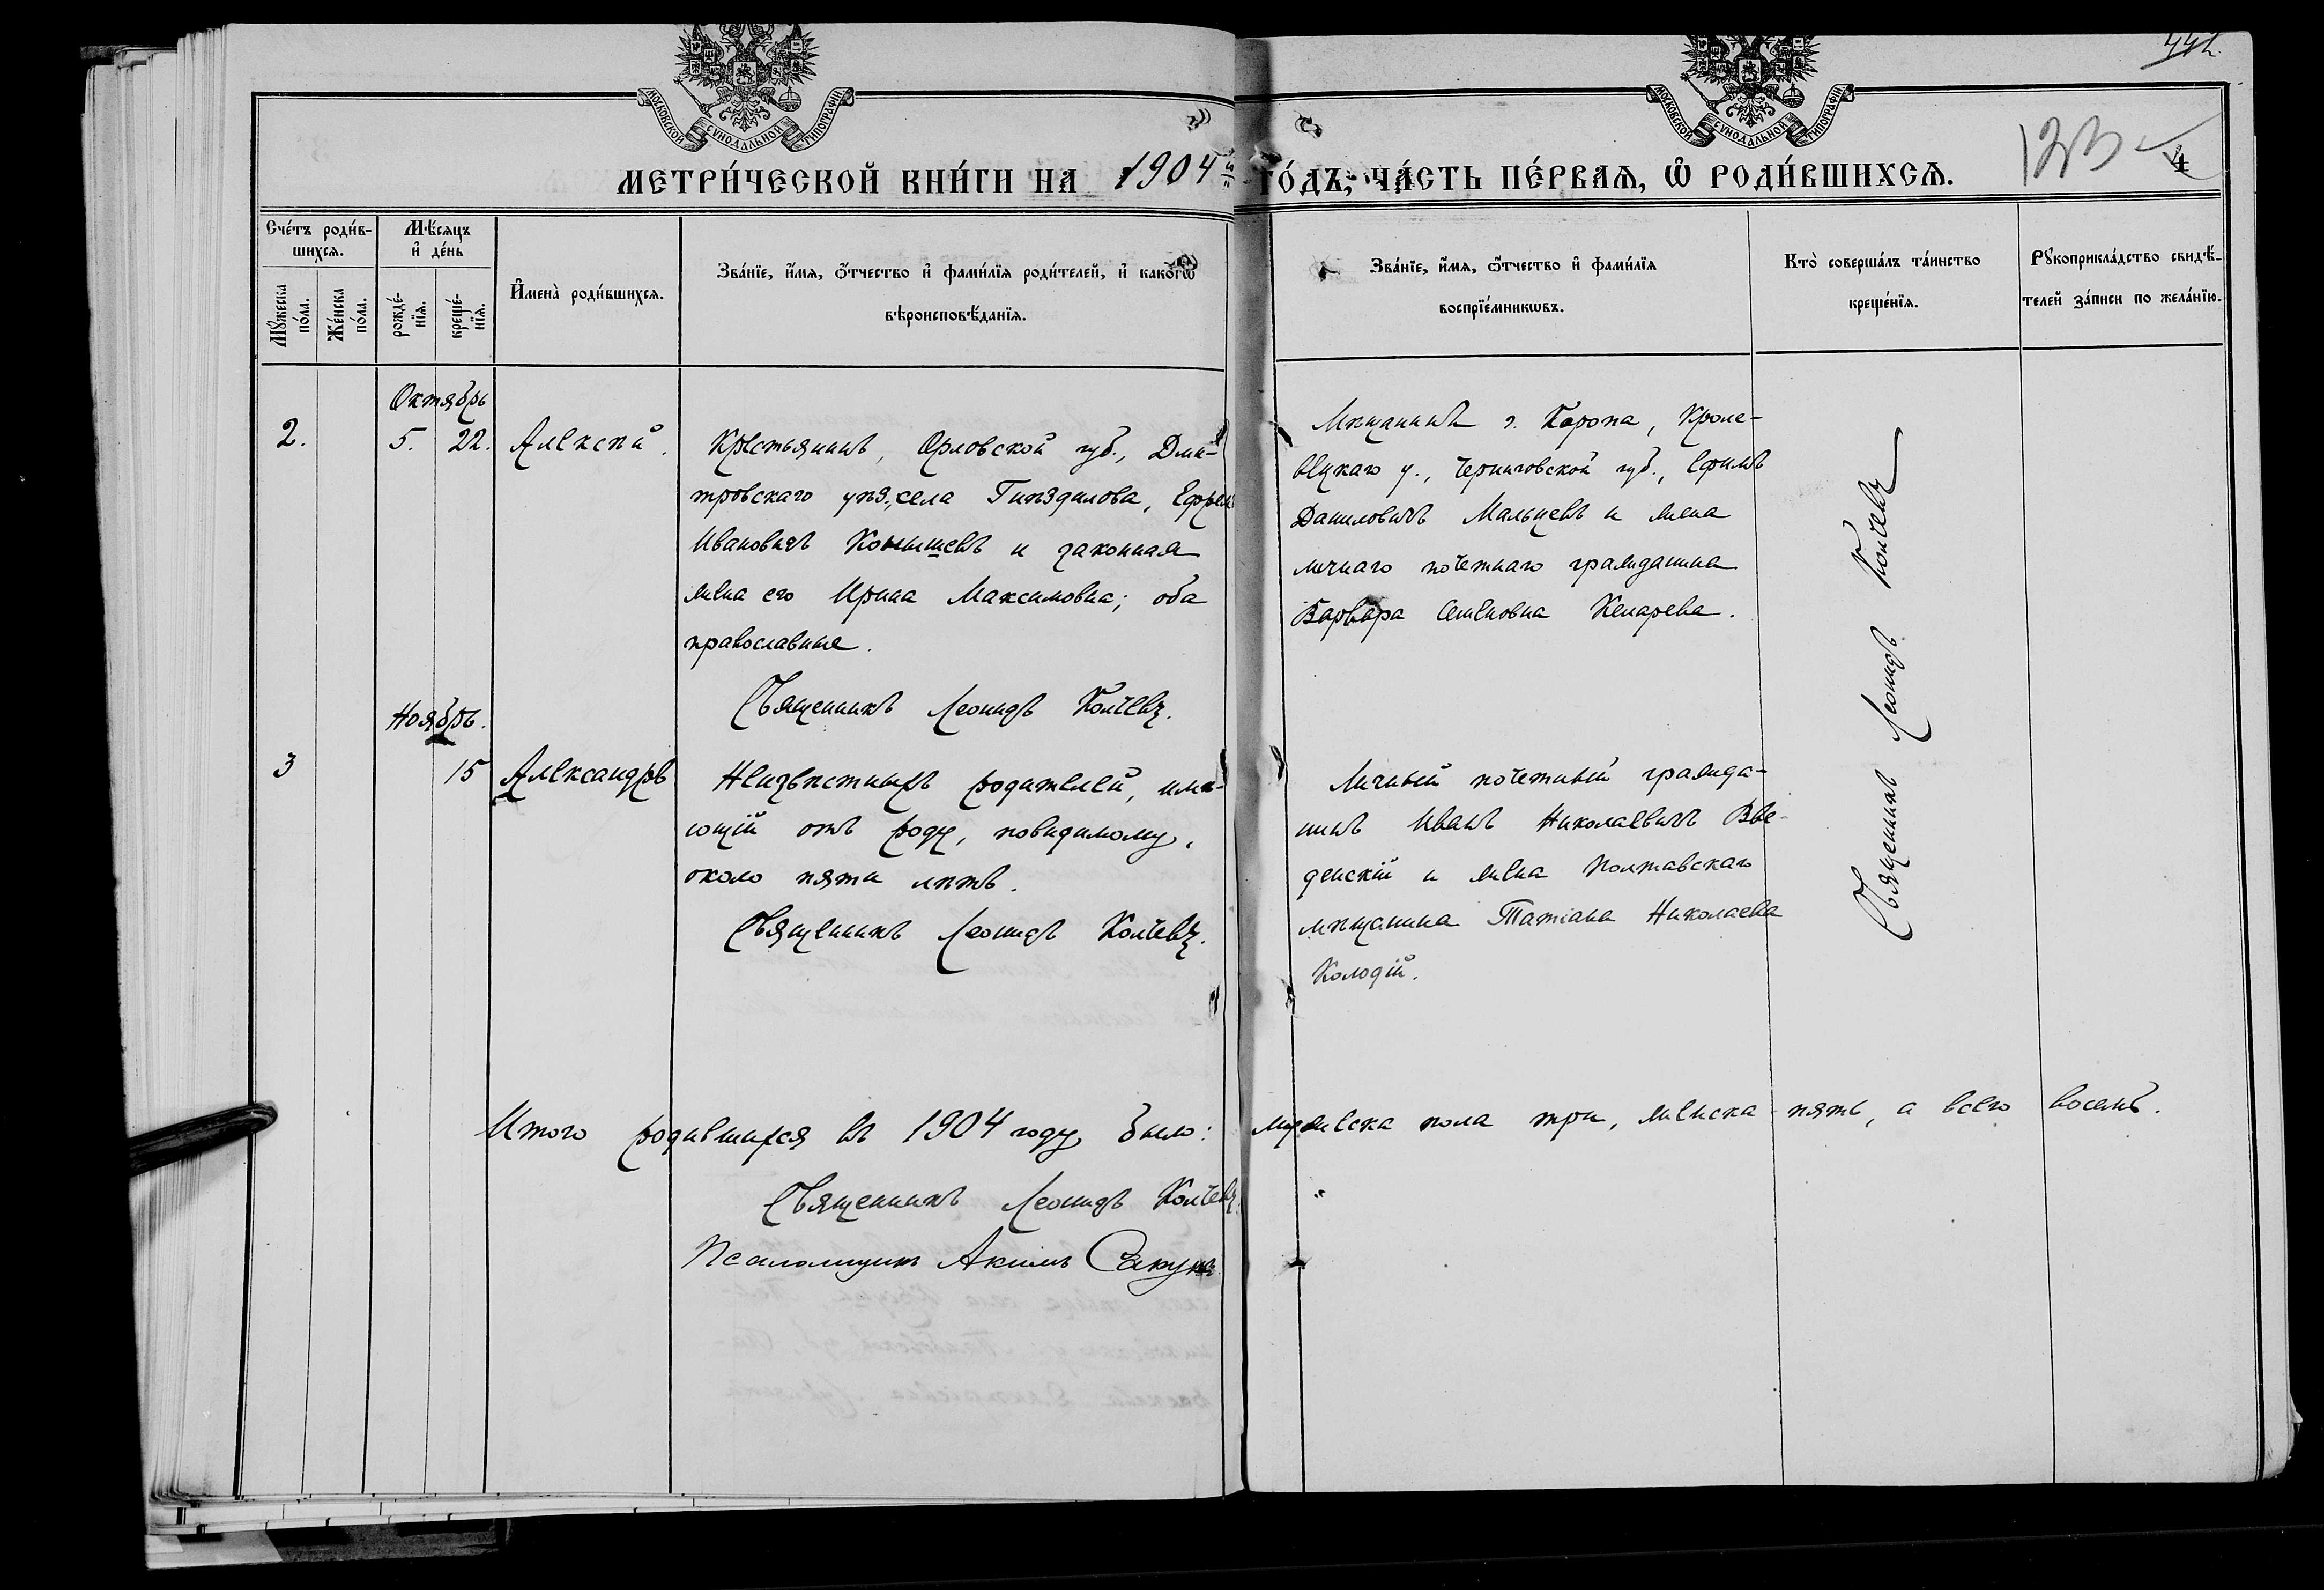 МОСКОВСКОЙ СѴНОДАЛЬНОЙ ТИПОГРАФІИ
МОСКОВСКОЙ СѴНОДАЛЬНОЙ ТИПОГРАФІИ
МЕТРИ́ЧЕСКОЙ КНИ́ГИ НА 1904й ГО́ДЪ, ЧА́СТЬ ПЕ́РВАѦ, Ѿ РОДИ́ВШИХСѦ.
4
Сче́тъ роди́в-
шихсѧ.
Мѣ́сѧцъ
и҆ де́нь
Мꙋ́жеска
по́ла.
Же́нска
по́ла.
рожде́-
нїѧ.
креще́-
нїѧ.
И҆мена̀ роди́вшихсѧ.
Зва́нїе, и҆́мѧ, ѻ҆́тчество и҆ фами́лїѧ роди́телей, и҆ како́гѡ
вѣроисповѣ́данїѧ.
Зва́нїе, и҆́мѧ, ѻ҆́тчество и҆ фами́лїѧ
воспрїе́мникѡвъ.
Кто̀ соверша́лъ та́инство
креще́нїѧ.
Рꙋкоприкла́дство свидѣ́-
телей за́писи по жела́нїю.
Октябрь
2. 5. 22. Алексѣй.
Крестьянинъ, Орловской губ., Дми-
тровскаго уѣз., села Гнѣздилова, Ефремъ
Ивановичъ Конышевъ и законная
жена его Ирина Максимовна; оба
православные.
Священникъ Леонидъ Колчевъ.
Мѣщанинъ г. Коропа, Кроле-
вецкаго у., Черниговской губ., Ефимъ
Даниловичъ Мальцевъ и жена
личнаго почетнаго гражданина
Варвара Семеновна Келарева.
Ноябрь.
3 15 Александръ
Неизвѣстныхъ родителей, имѣ-
ющій отъ роду, повидимому,
около пяти лѣтъ.
Священникъ Леонидъ Колчевъ.
Личный почетный гражда-
нинъ Иванъ Николаевичъ Вве-
денскій и жена Полтавскаго
мѣщанина Татіана Николаева
Колодій.
Священникъ Леонидъ Колчевъ
Итого родившихся въ 1904 году было: мужеска пола три, женска пять, а всего восемь.
Священникъ Леонидъ Колчевъ.
Псаломщикъ Акимъ Сакунъ